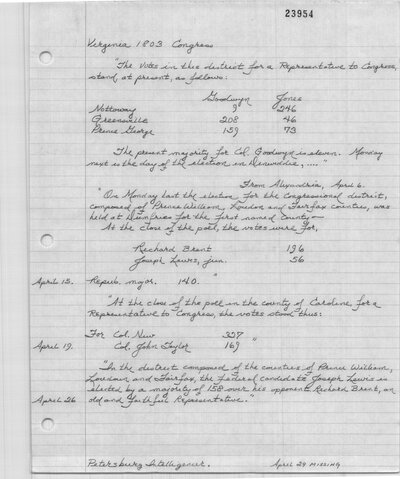 23954
Virginia 1803 Congress
"The Votes in this district for a Representative to Congress,
stand at present, as follows:
Goodwyn Jones
Nottoway 9 246
Greensville 208 46
Prince George 159 73
The present majority for Col. Goodwyn is eleven. Monday
next is the day of the election in Dinwiddie, ...."
From Alexandria, April 6.
"On Monday last the election for the Congressional district,
composed of Prince William, Loudon and Fairfax counties, was
held at Dumfries for the first named County—
At the close of the poll, the votes were for,
Richard Brent 196
Joseph Lewis, jun. 56
April 15. Repub. major. 140. "
"At the close of the poll in the county of Caroline, for a
Representative to Congress, the votes stood thus:
For Col. New 357
April 19. Col. John Taylor 169 "
"In the district composed of the counties of Prince William,
Loudoun and Fairfax, the Federal candidate Joseph Lewis is
elected by a majority of 158 over his opponent Richard Brent, an
April 26 old and faithful Representative."
Petersburg Intelligencer. April 29 MISSING